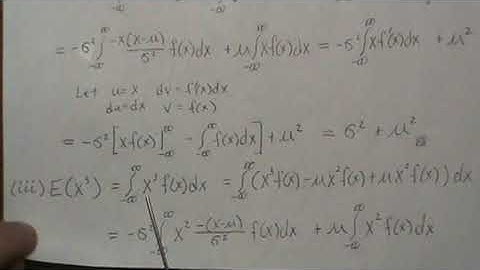 = -σ² ∫_{-∞}^{∞} -x(x-μ)/σ² f(x)dx + μ ∫_{-∞}^{∞} x f(x)dx = -σ² ∫_{-∞}^{∞} x f'(x)dx + μ²
Let u = x dv = f'(x)dx
du = dx v = f(x)
= -σ² [x f(x)|_{-∞}^{∞} - ∫_{-∞}^{∞} f(x)dx] + μ² = σ² + μ²
(iii) E(X³) = ∫_{-∞}^{∞} x³ f(x)dx = ∫_{-∞}^{∞} (x³f(x) - μx²f(x) + μx²f(x)) dx
= -σ² ∫_{-∞}^{∞} x² -(x-μ)/σ² f(x)dx + μ ∫_{-∞}^{∞} x² f(x)dx